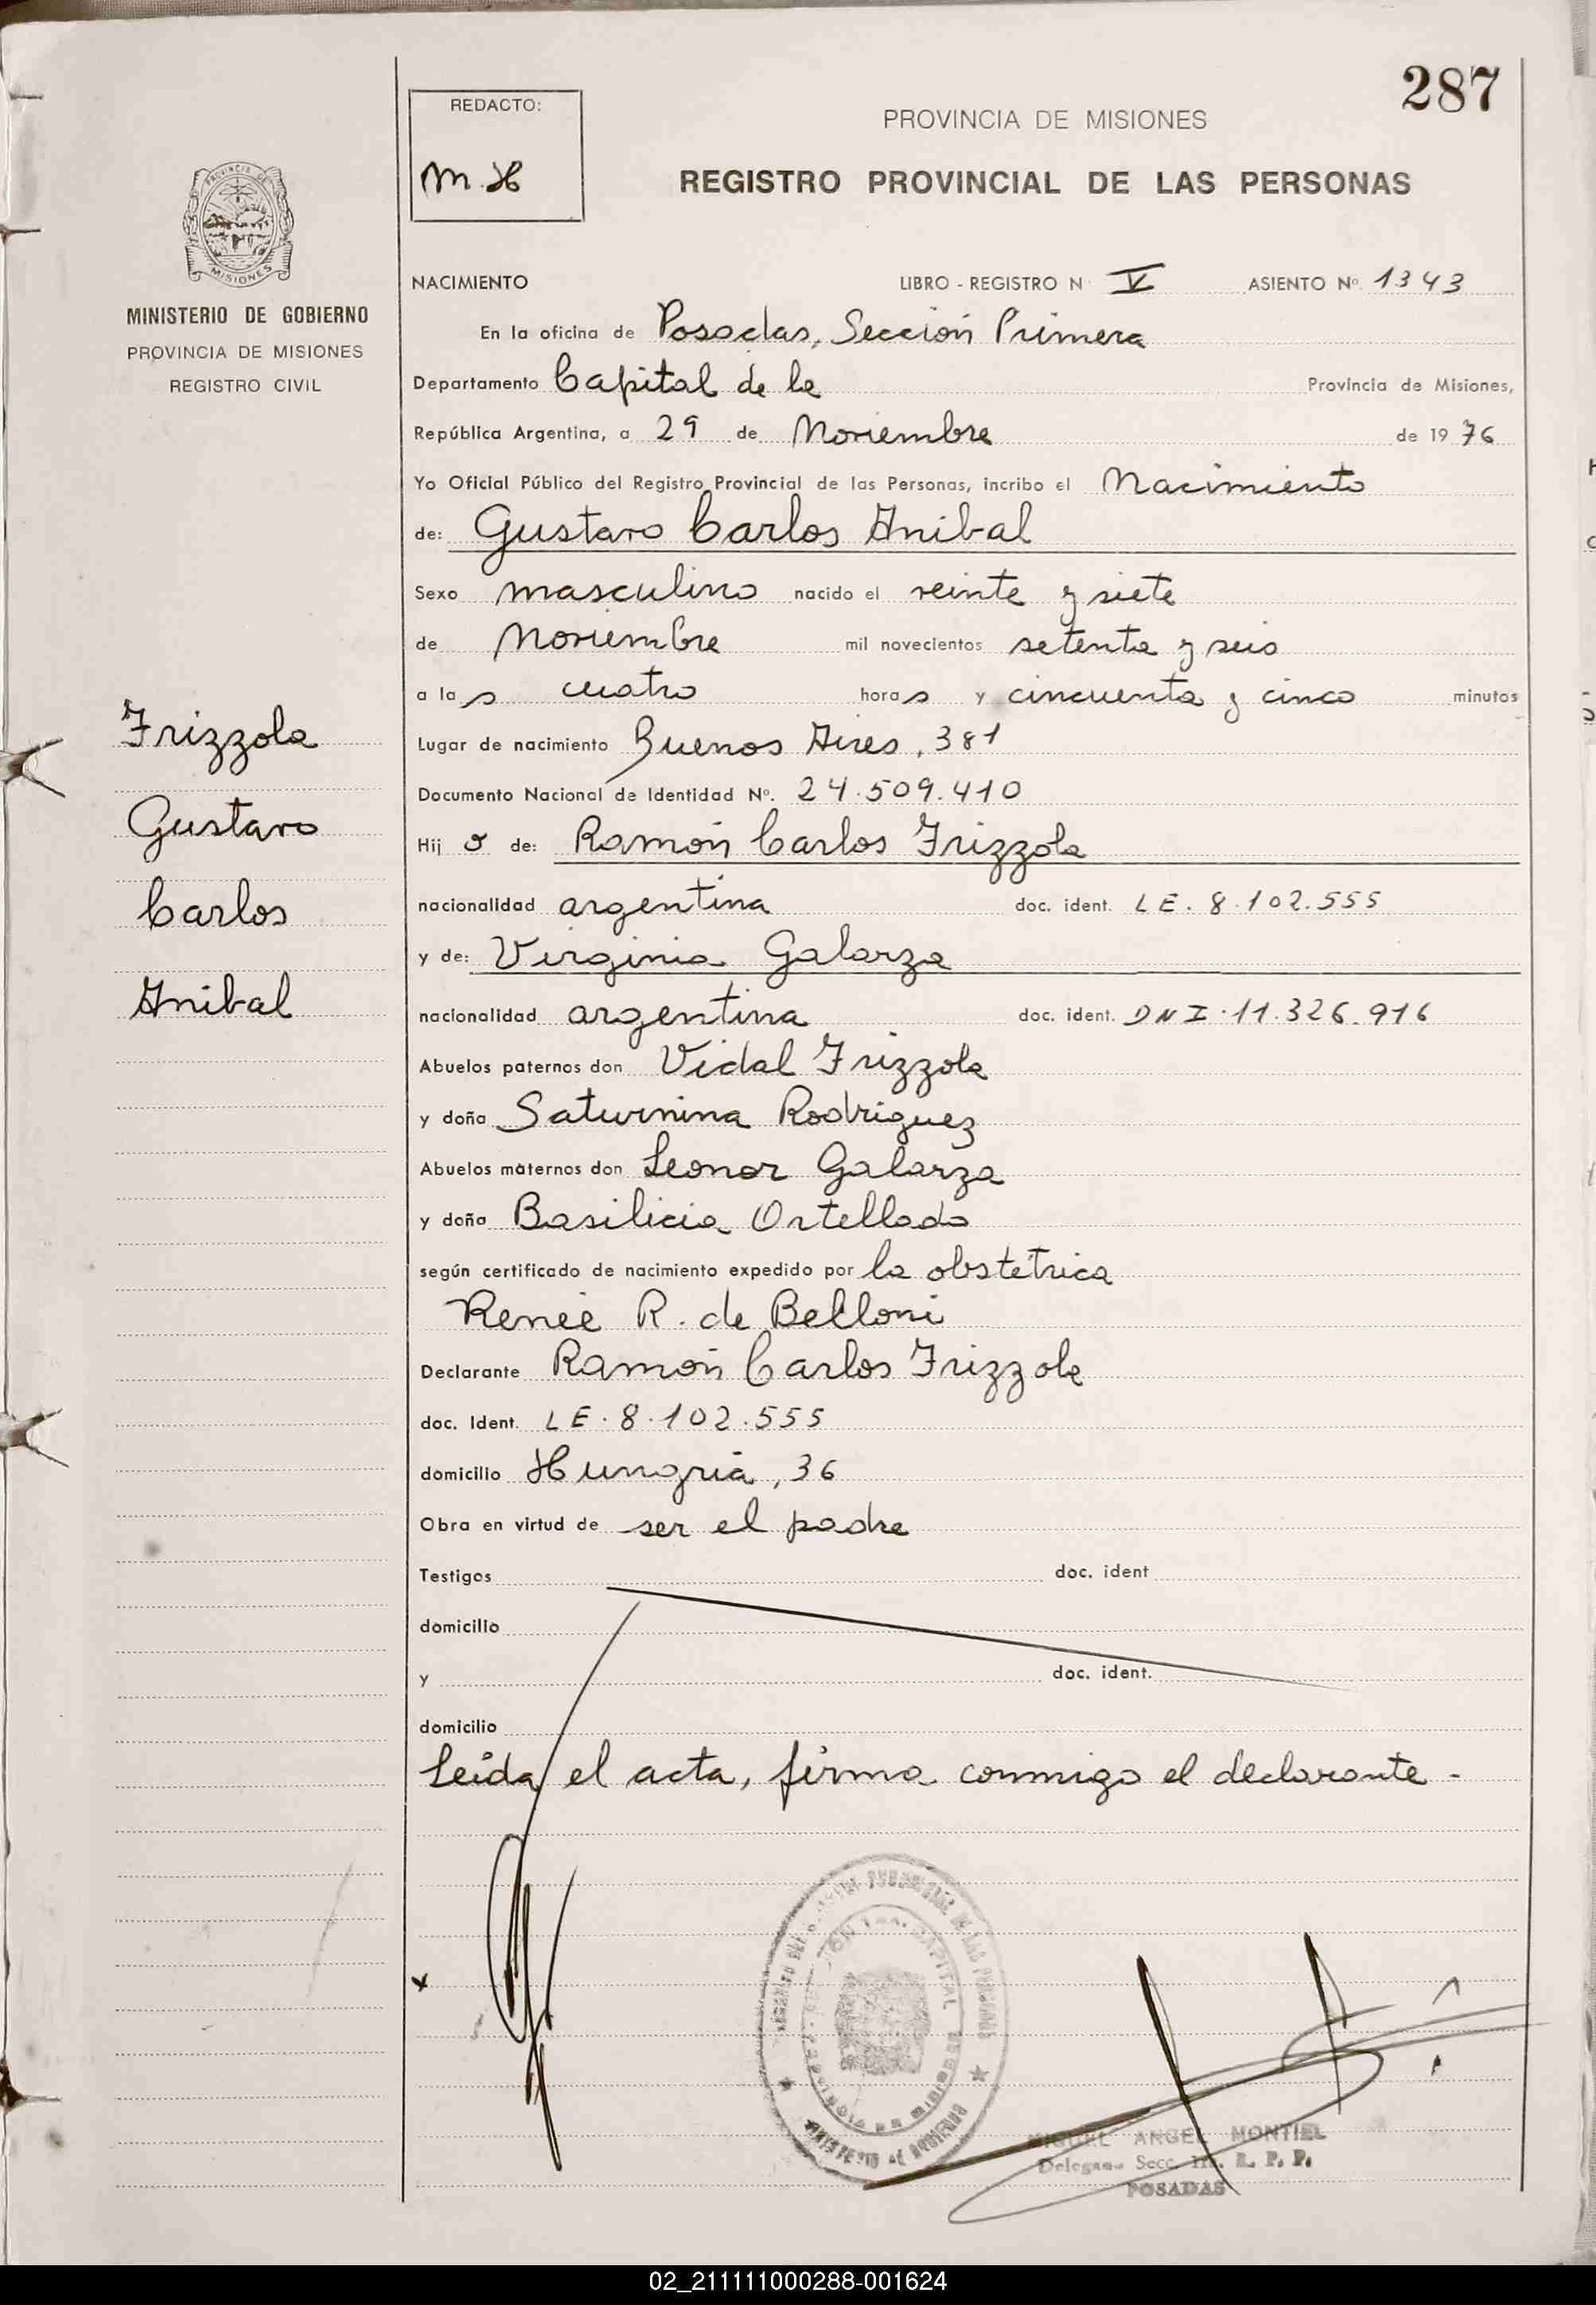 287
REDACTO:
M.H
PROVINCIA DE MISIONES
REGISTRO PROVINCIAL DE LAS PERSONAS
PROVINCIA DE
MISIONES
MINISTERIO DE GOBIERNO
PROVINCIA DE MISIONES
REGISTRO CIVIL
NACIMIENTO LIBRO - REGISTRO N V ASIENTO Nº. 1343
En la oficina de Posadas, Sección Primera
Departamento Capital de la Provincia de Misiones,
República Argentina, a 29 de Noviembre de 1976
Yo Oficial Público del Registro Provincial de las Personas, incribo el Nacimiento
de: Gustavo Carlos Anibal
Sexo masculino nacido el veinte y siete
de Noviembre mil novecientos setenta y seis
a las cuatro horas y cincuenta y cinco minutos
Lugar de nacimiento Buenos Aires, 381
Documento Nacional de Identidad Nº. 24.509.410
Hijo de: Ramón Carlos Frizzola
nacionalidad argentina doc. ident. LE. 8.102.555
y de: Virginia Galarza
nacionalidad argentina doc. ident. DNI.11.326.916
Abuelos paternos don Vidal Frizzola
y doña Saturnina Rodriguez
Abuelos maternos don Leonor Galarza
y doña Basilicia Ortellado
según certificado de nacimiento expedido por la obstétrica
Reneé R. de Belloni
Declarante Ramón Carlos Frizzola
doc. Ident. LE. 8.102.555
domicilio Hungria, 36
Obra en virtud de ser el padre
Testigos doc. ident
domicilio
y doc. ident.
domicilio
Leída el acta, firma conmigo el declarante -
Frizzola
Gustavo
Carlos
Anibal
x
MIGUEL ANGEL MONTIEL
Secc. R. P. P.
POSADAS
02_211111000288-001624